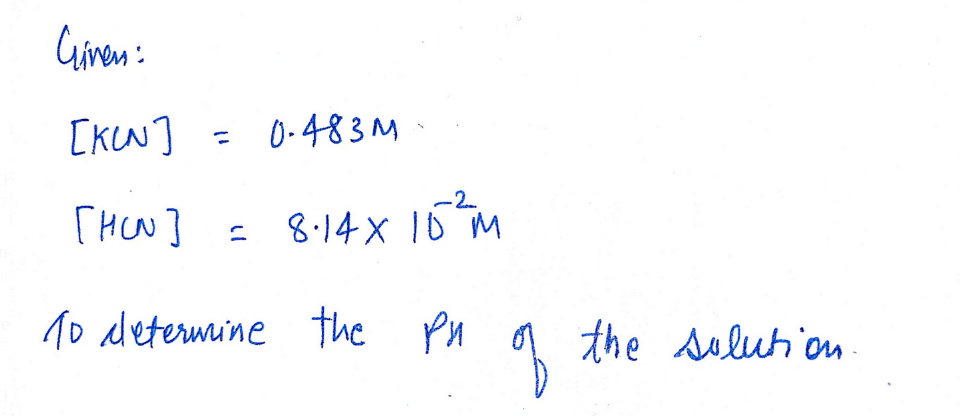 Given:
[KCN] = 0.483M
[HCN] = 8.14 x 10⁻² M
To determine the PH of the solution.